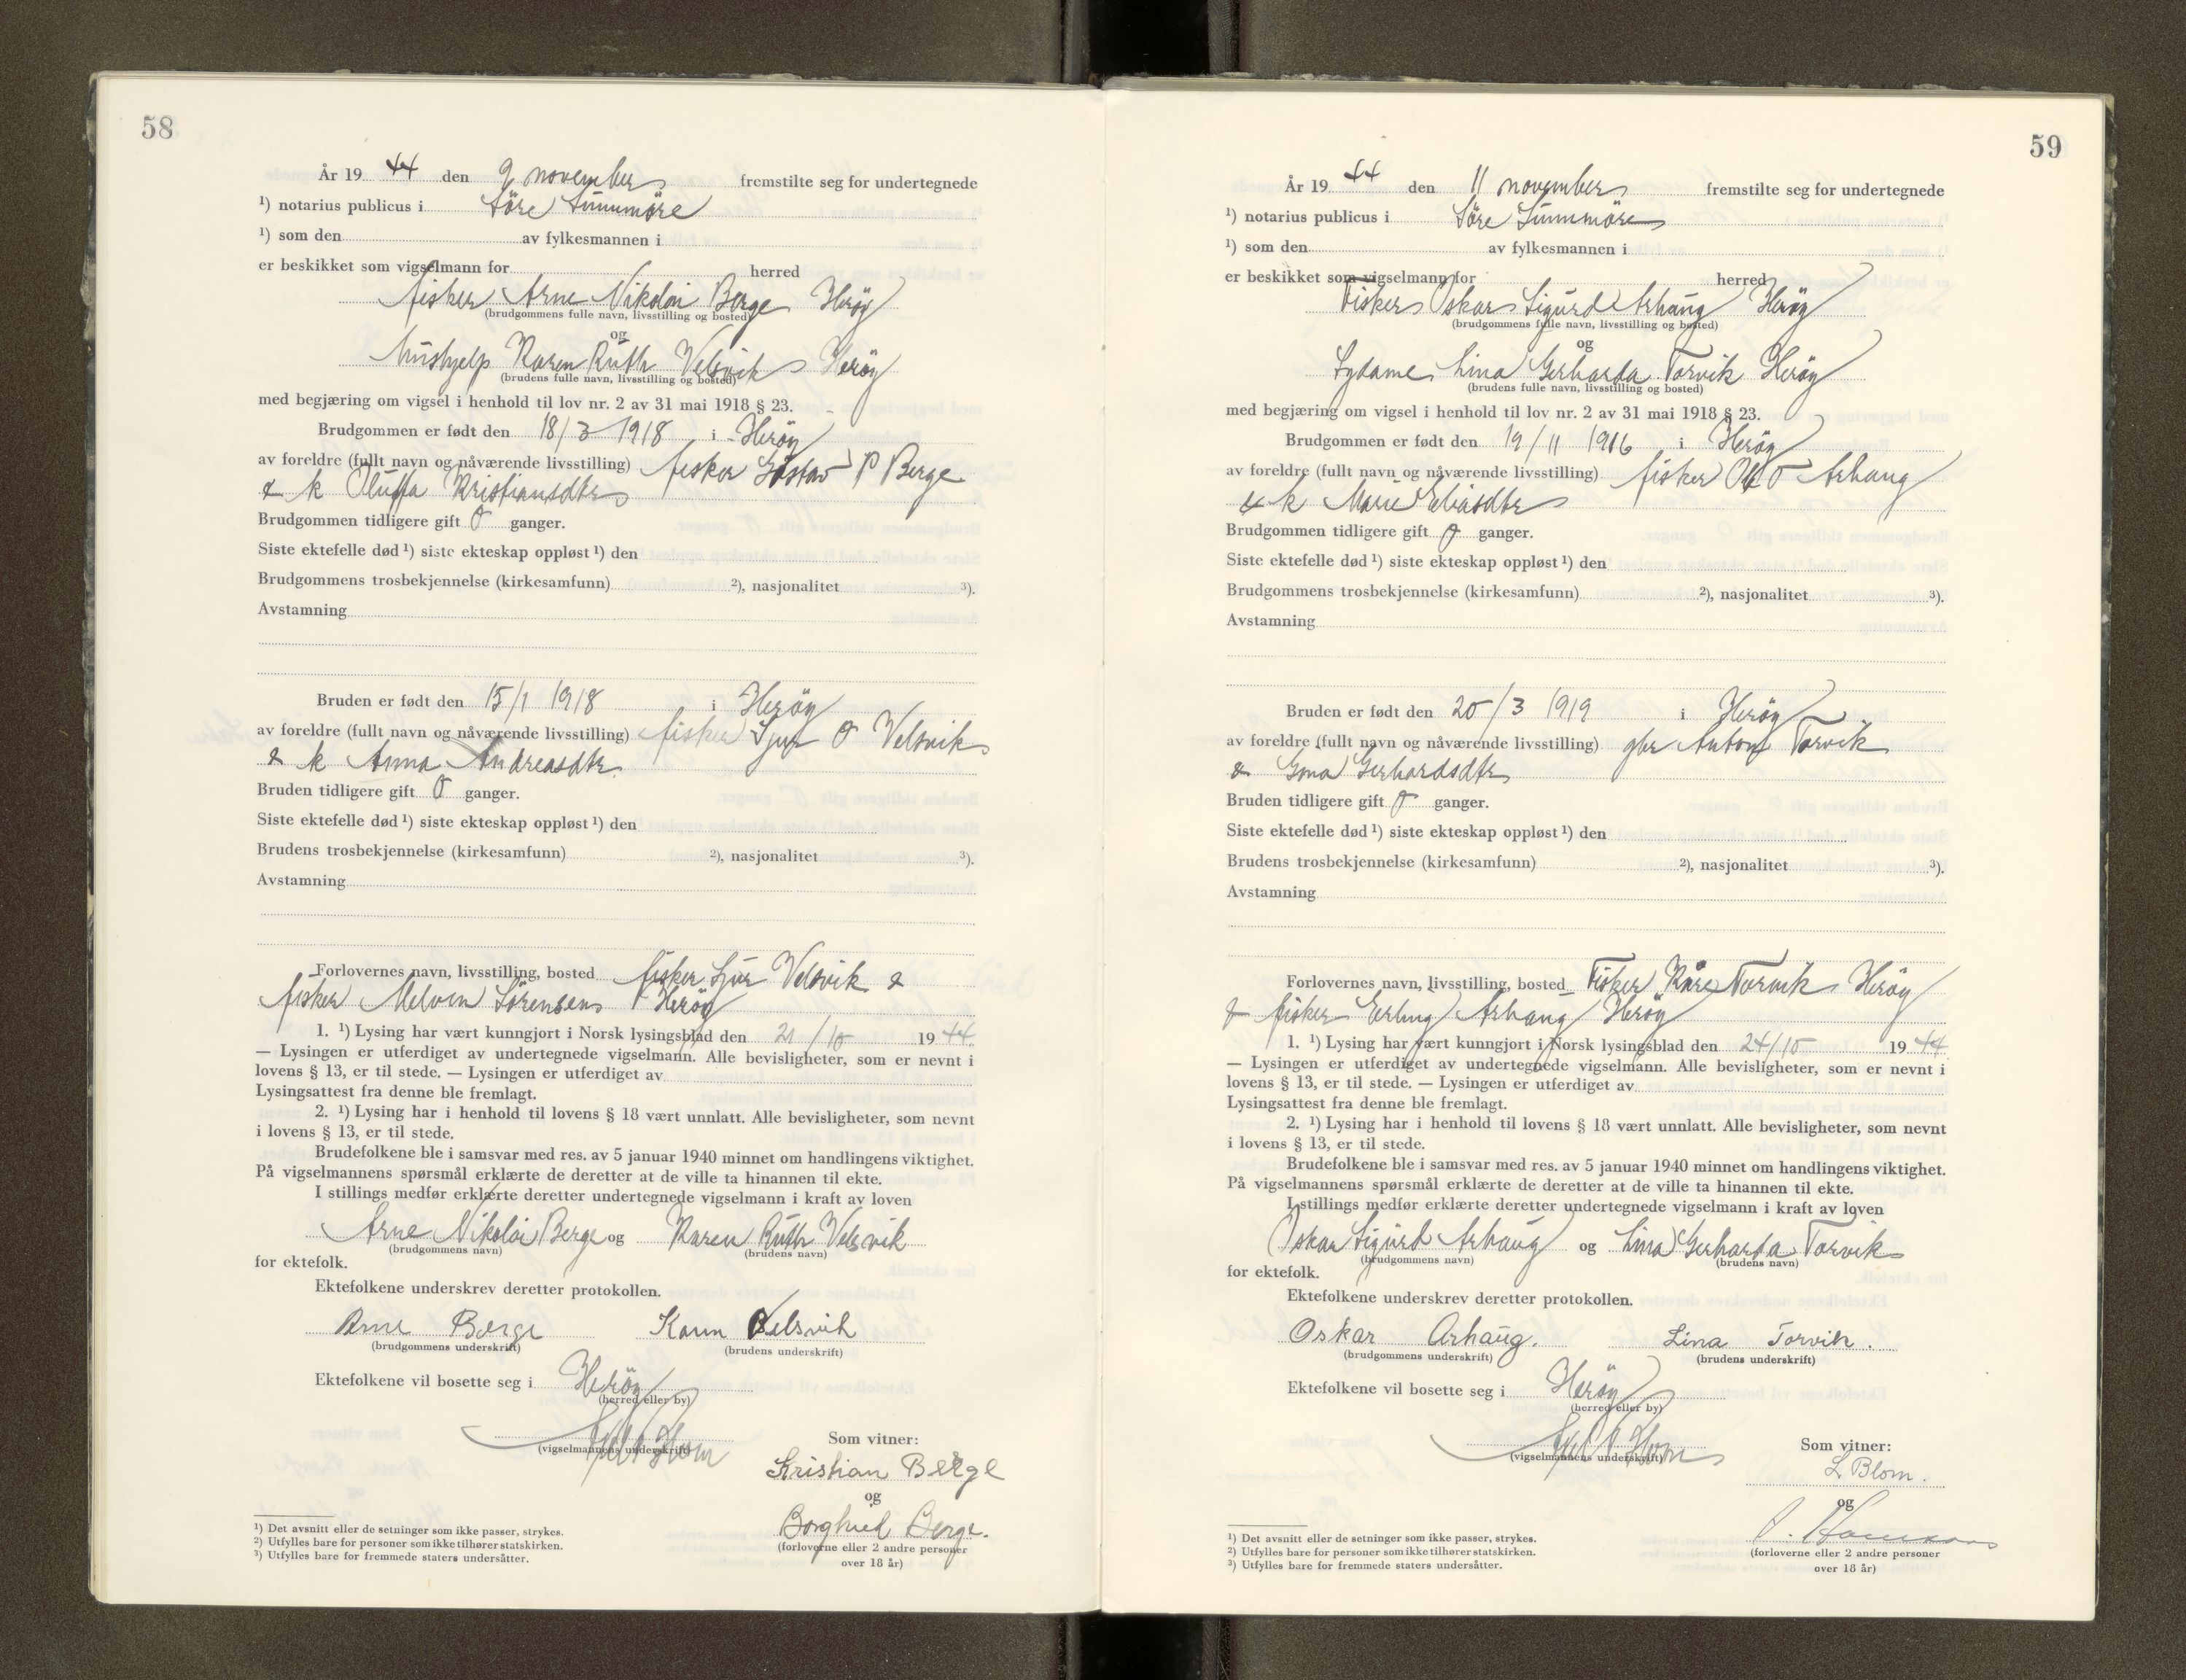 58
År 19 44 den 9 november fremstilte seg for undertegnede
¹) notarius publicus i Söre Sunnmöre
¹) som den av fylkesmannen i
er beskikket som vigselmann for herred
fisker Arne Nikolai Berge Heröy
(brudgommens fulle navn, livsstilling og bosted)
og
hushjelp Karen Ruth Velsvik Heröy
(brudens fulle navn, livsstilling og bosted)
med begjæring om vigsel i henhold til lov nr. 2 av 31 mai 1918 § 23.
Brudgommen er født den 18/3 1918 i Heröy
av foreldre (fullt navn og nåværende livsstilling) fisker Gustav P Berge
& k Oluffa Kristiansdtr
Brudgommen tidligere gift 0 ganger.
Siste ektefelle død ¹) siste ekteskap oppløst ¹) den
Brudgommens trosbekjennelse (kirkesamfunn) ²), nasjonalitet ³).
Avstamning
Bruden er født den 15/1 1918 i Heröy
av foreldre (fullt navn og nåværende livsstilling) fisker Sjur O Velsvik
& k Anna Andreasdtr
Bruden tidligere gift 0 ganger.
Siste ektefelle død ¹) siste ekteskap oppløst ¹) den
Brudens trosbekjennelse (kirkesamfunn) ²), nasjonalitet ³).
Avstamning
Forlovernes navn, livsstilling, bosted fisker Sjur Velsvik &
fisker Melvin Sörensen Heröy
1. ¹) Lysing har vært kunngjort i Norsk lysingsblad den 21/10 1944.
— Lysingen er utferdiget av undertegnede vigselmann. Alle bevisligheter, som er nevnt i
lovens § 13, er til stede. — Lysingen er utferdiget av
Lysingsattest fra denne ble fremlagt.
2. ¹) Lysing har i henhold til lovens § 18 vært unnlatt. Alle bevisligheter, som nevnt
i lovens § 13, er til stede.
Brudefolkene ble i samsvar med res. av 5 januar 1940 minnet om handlingens viktighet.
På vigselmannens spørsmål erklærte de deretter at de ville ta hinannen til ekte.
I stillings medfør erklærte deretter undertegnede vigselmann i kraft av loven
Arne Nikolai Berge og Karen Ruth Velsvik
(brudgommens navn) (brudens navn)
for ektefolk.
Ektefolkene underskrev deretter protokollen.
Arne Berge Karen Velsvik
(brudgommens underskrift) (brudens underskrift)
Ektefolkene vil bosette seg i Heröy
(herred eller by)
(vigselmannens underskrift)
Som vitner:
Kristian Berge
og
Borghild Berge.
(forloverne eller 2 andre personer
over 18 år)
¹) Det avsnitt eller de setninger som ikke passer, strykes.
²) Utfylles bare for personer som ikke tilhører statskirken.
³) Utfylles bare for fremmede staters undersåtter.
59
År 19 44 den 11 november fremstilte seg for undertegnede
¹) notarius publicus i Söre Sunnmöre
¹) som den av fylkesmannen i
er beskikket som vigselmann for herred
Fisker Oskar Sigurd Arhaug Heröy
(brudgommens fulle navn, livsstilling og bosted)
og
Sydame Lina Gerharda Torvik Heröy
(brudens fulle navn, livsstilling og bosted)
med begjæring om vigsel i henhold til lov nr. 2 av 31 mai 1918 § 23.
Brudgommen er født den 19/11 1916 i Heröy
av foreldre (fullt navn og nåværende livsstilling) fisker O Arhaug
& k Marie Eliasdtr
Brudgommen tidligere gift 0 ganger.
Siste ektefelle død ¹) siste ekteskap oppløst ¹) den
Brudgommens trosbekjennelse (kirkesamfunn) ²), nasjonalitet ³).
Avstamning
Bruden er født den 20/3 1919 i Heröy
av foreldre (fullt navn og nåværende livsstilling) gbr Anton Torvik
& Gerhardsdtr
Bruden tidligere gift 0 ganger.
Siste ektefelle død ¹) siste ekteskap oppløst ¹) den
Brudens trosbekjennelse (kirkesamfunn) ²), nasjonalitet ³).
Avstamning
Forlovernes navn, livsstilling, bosted Fisker Kåre Torvik Heröy
& fisker Erling Arhaug Heröy
1. ¹) Lysing har vært kunngjort i Norsk lysingsblad den 24/10 1944.
— Lysingen er utferdiget av undertegnede vigselmann. Alle bevisligheter, som er nevnt i
lovens § 13, er til stede. — Lysingen er utferdiget av
Lysingsattest fra denne ble fremlagt.
2. ¹) Lysing har i henhold til lovens § 18 vært unnlatt. Alle bevisligheter, som nevnt
i lovens § 13, er til stede.
Brudefolkene ble i samsvar med res. av 5 januar 1940 minnet om handlingens viktighet.
På vigselmannens spørsmål erklærte de deretter at de ville ta hinannen til ekte.
I stillings medfør erklærte deretter undertegnede vigselmann i kraft av loven
Oskar Sigurd Arhaug og Lina Gerharda Torvik
(brudgommens navn) (brudens navn)
for ektefolk.
Ektefolkene underskrev deretter protokollen.
Oskar Arhaug. Lina Torvik.
(brudgommens underskrift) (brudens underskrift)
Ektefolkene vil bosette seg i Heröy
(herred eller by)
(vigselmannens underskrift)
Som vitner:
L Blom.
og
(forloverne eller 2 andre personer
over 18 år)
¹) Det avsnitt eller de setninger som ikke passer, strykes.
²) Utfylles bare for personer som ikke tilhører statskirken.
³) Utfylles bare for fremmede staters undersåtter.